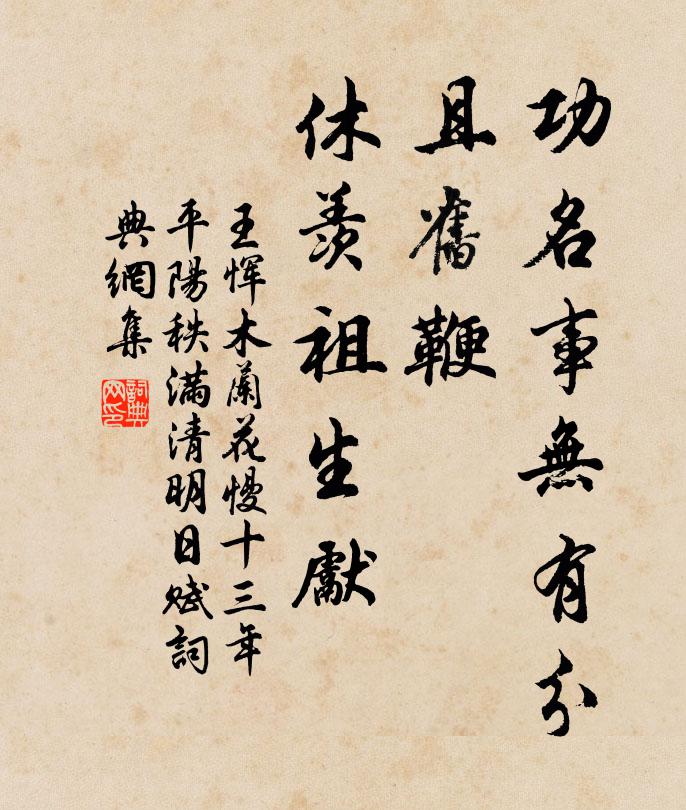 功名事無有分
且舊鞭
休羨祖生獻
王惲木蘭花慢十三年
平陽秩滿清明日賦詞
典網集
詞典網印